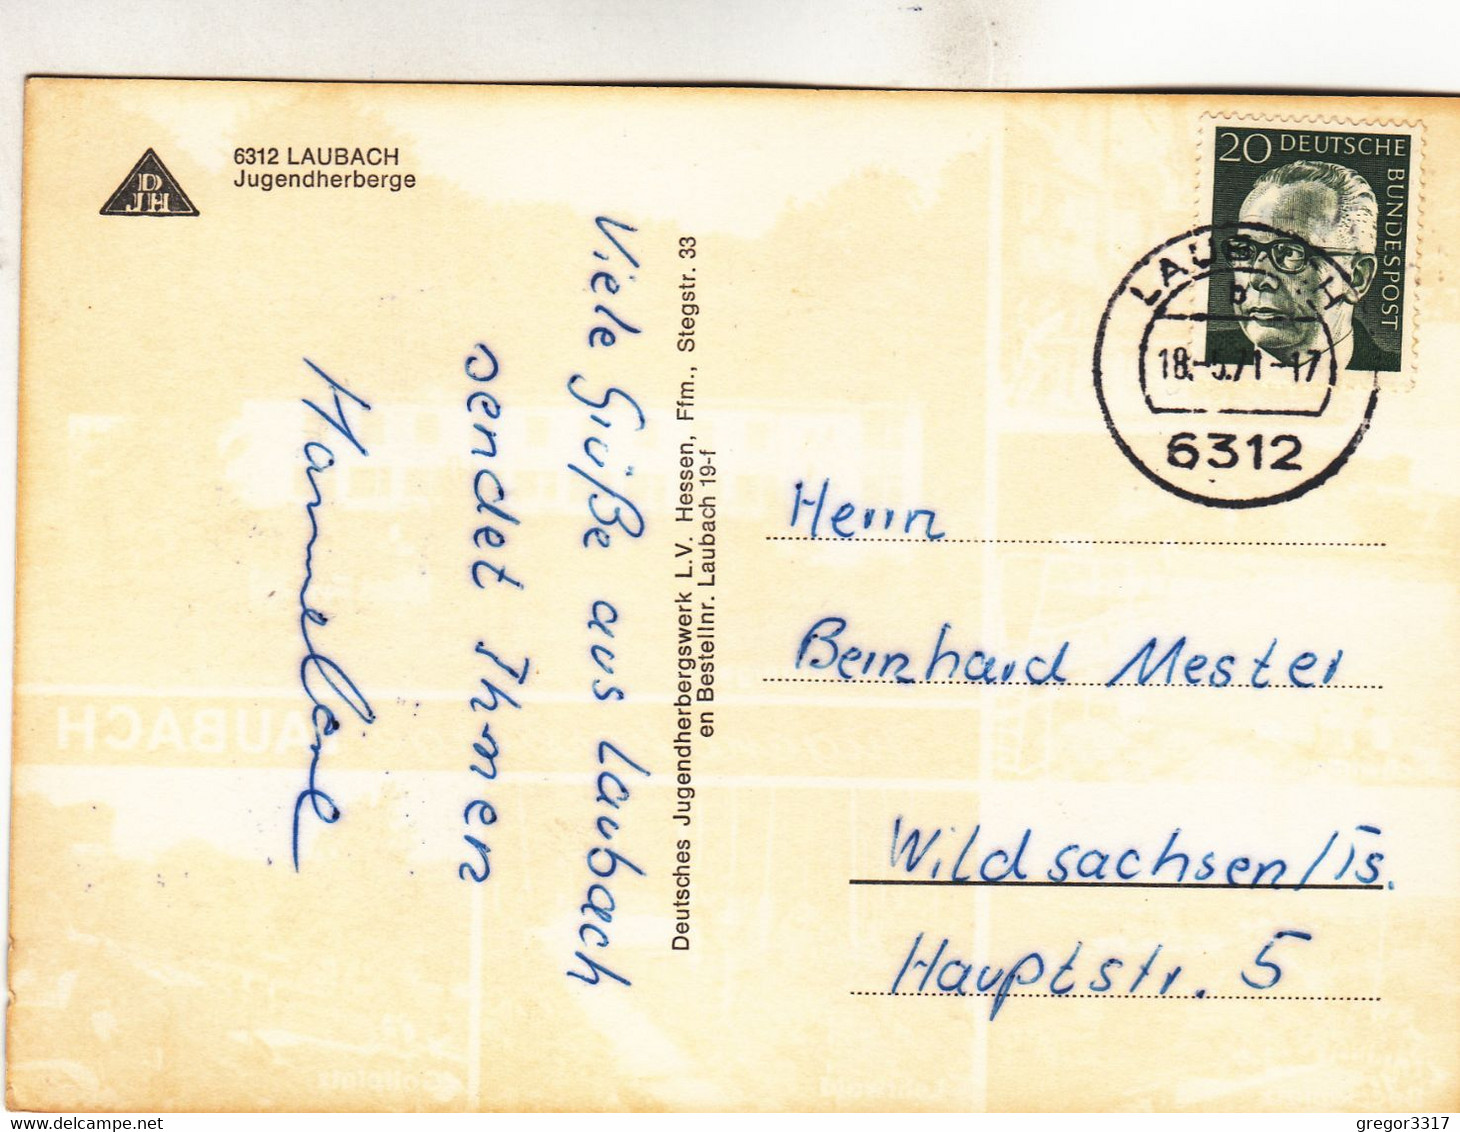 DJH
6312 LAUBACH
Jugendherberge
Viele Grüße aus Laubach
sendet Ihnen
Hannelore
Deutsches Jugendherbergswerk L.V. Hessen, Ffm., Stegstr. 33
en Bestellnr. Laubach 19-f
20 DEUTSCHE BUNDESPOST
LAUBACH
b
18.-5.71-17
6312
Herrn
Bernhard Mester
Wildsachsen/Ts.
Hauptstr. 5
LAUBACH
delcampe.net
gregor3317